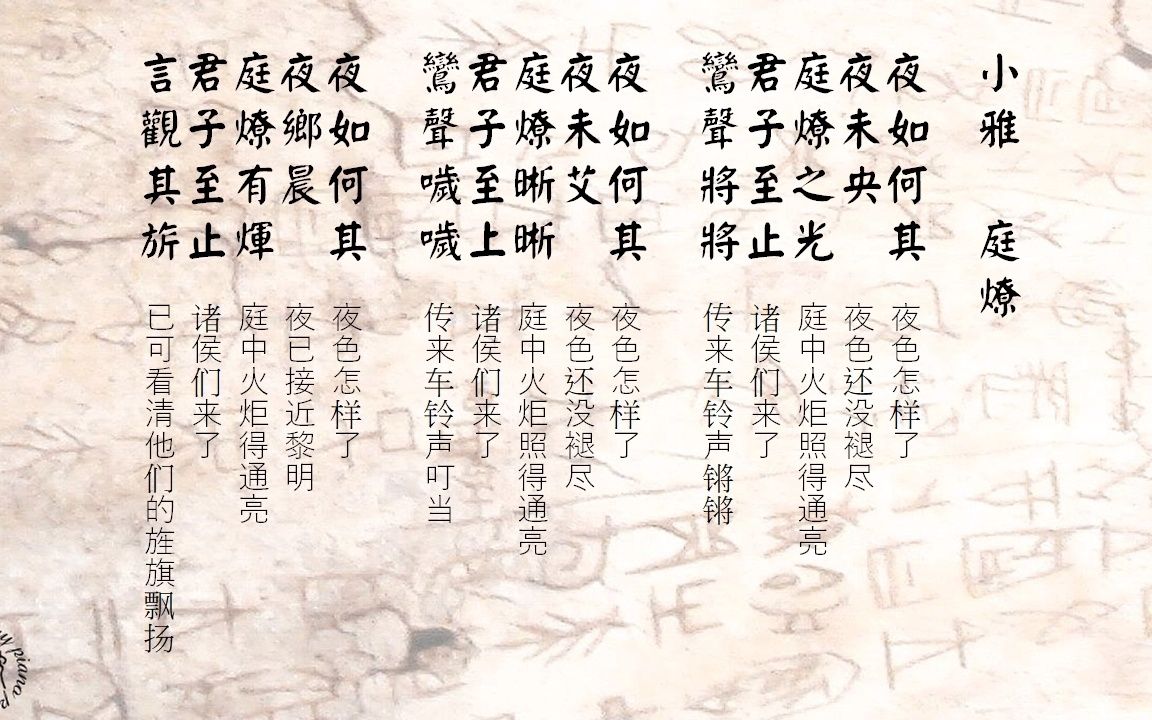 小雅 庭燎
夜如何其
夜未央
庭燎之光
君子至止
鸞聲將將
夜色怎样了
夜色还没褪尽
庭中火炬照得通亮
诸侯们来了
传来车铃声锵锵
夜如何其
夜未艾
庭燎晰晰
君子至上
鸞聲噦噦
夜色怎样了
夜色还没褪尽
庭中火炬照得通亮
诸侯们来了
传来车铃声叮当
夜如何其
夜鄉晨
庭燎有煇
君子至止
言觀其旂
夜色怎样了
夜已接近黎明
庭中火炬得通亮
诸侯们来了
已可看清他们的旌旗飘扬
piano